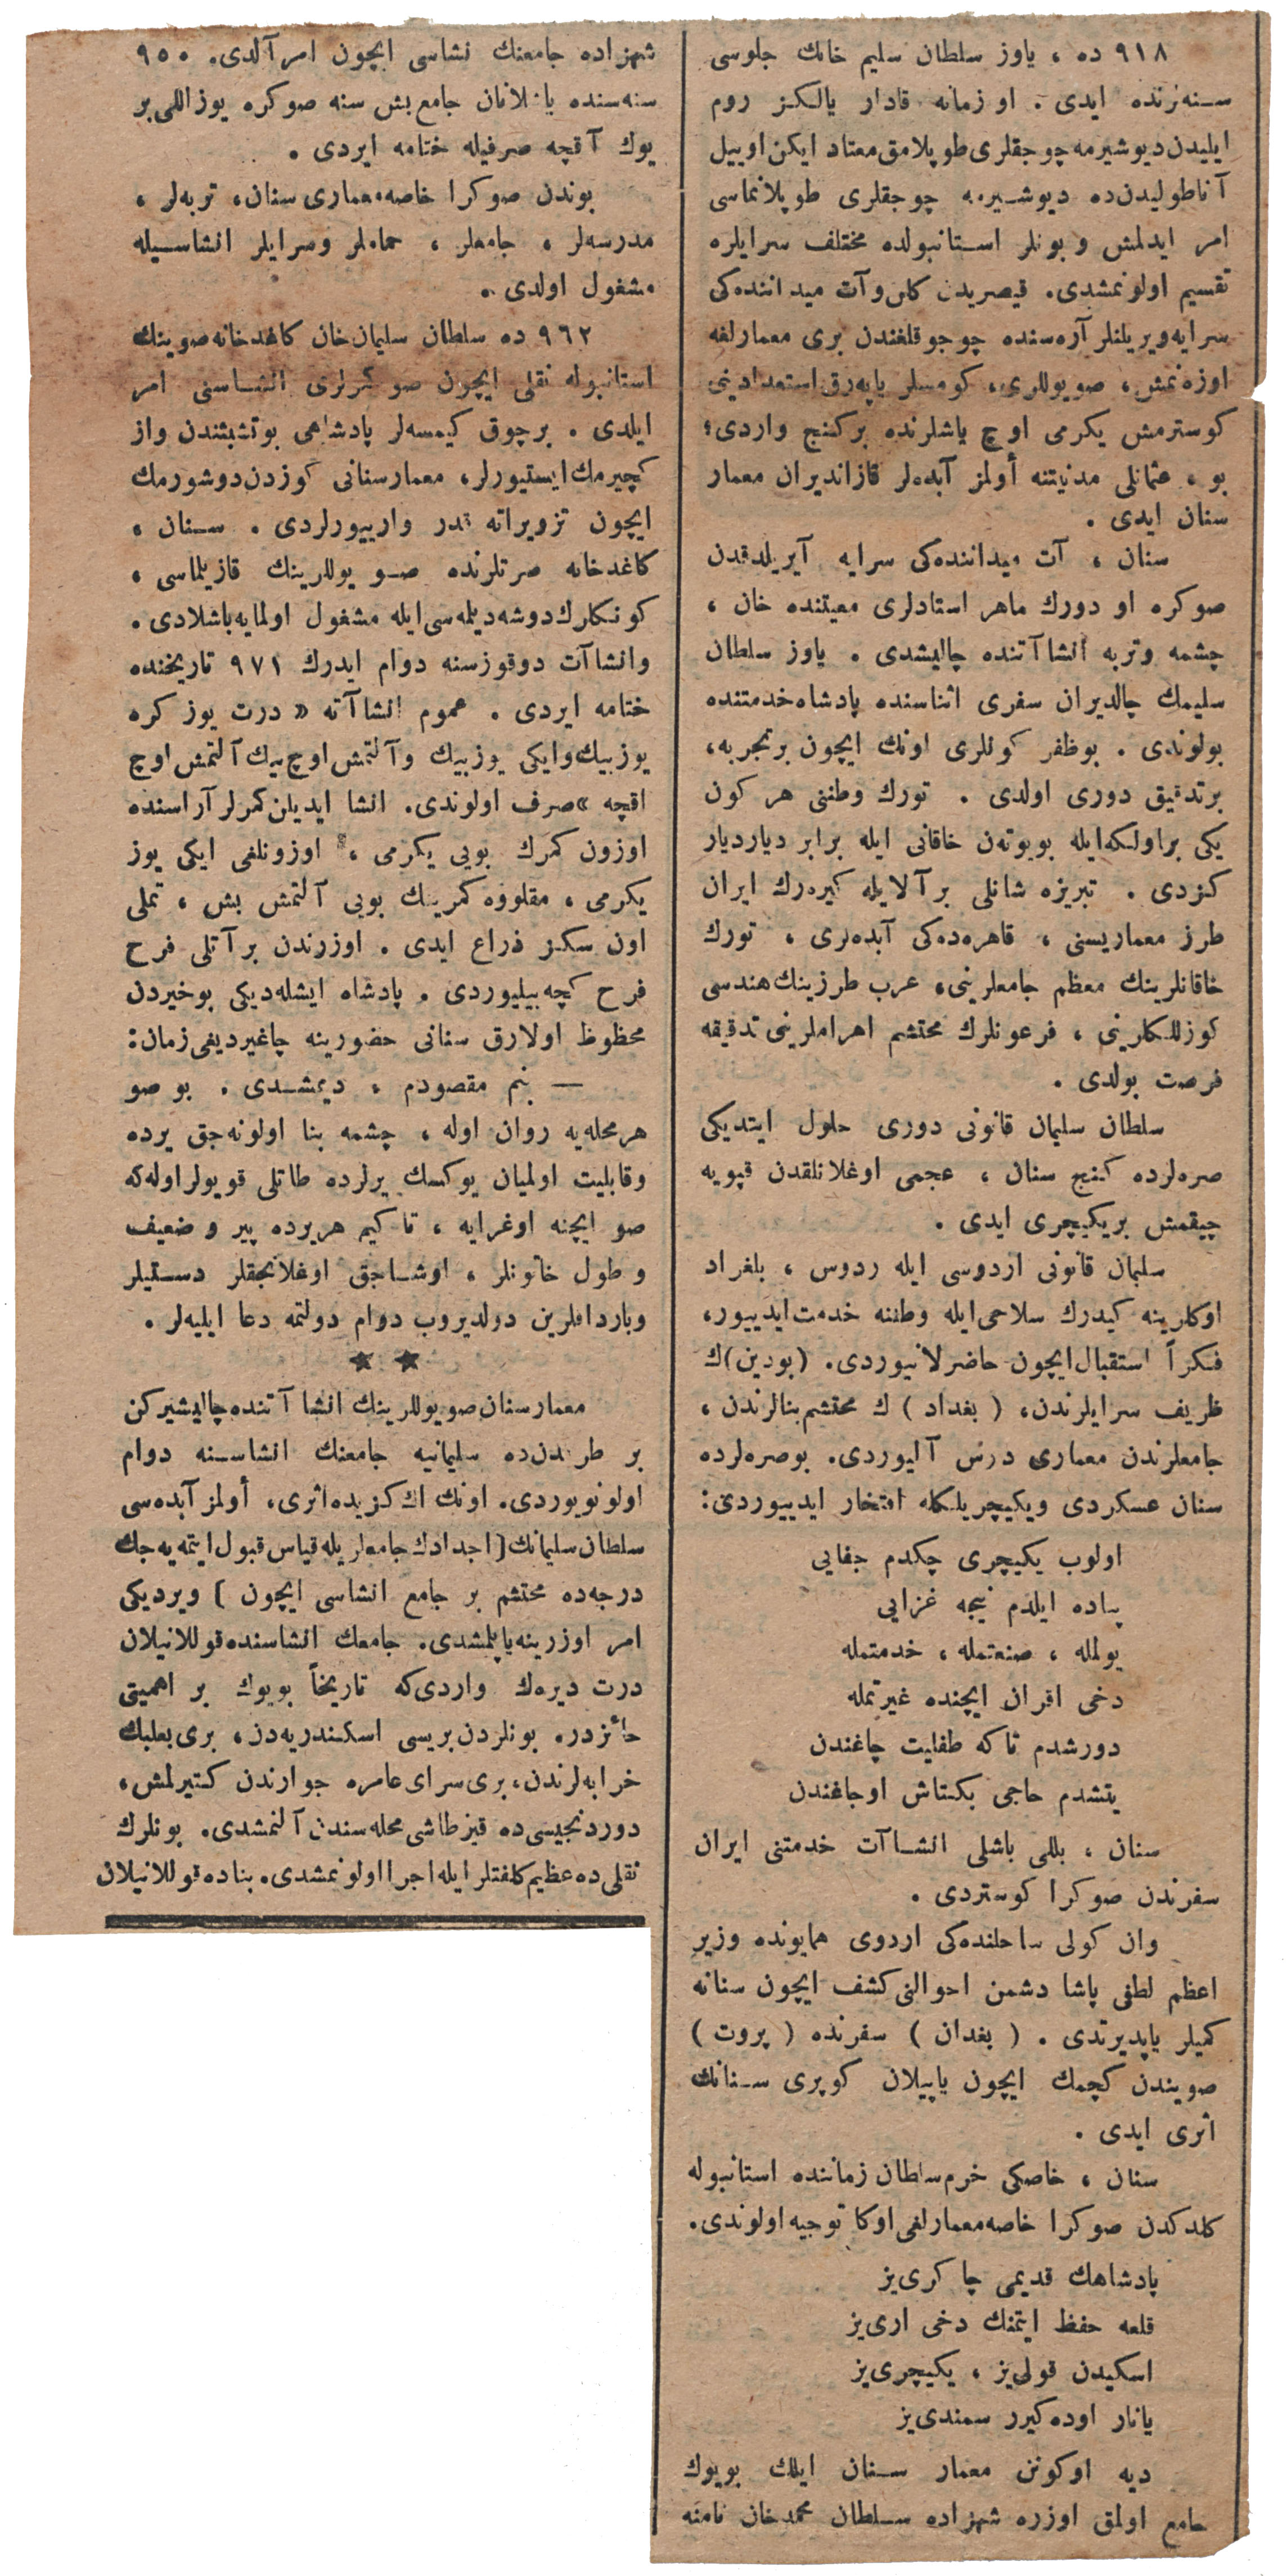 ٩١٨ ده ، ياوز سلطان سليم خانك جلوسى
سنه‌لرنده ايدى . او زمانه قادار يالكز روم
ايليدن ديوشيرمه چوجقلرى طوپلامق معتاد ايكن اوييل
آناطوليدن‌ده ديوشيرمه چوجقلرى طوپلانماسى
امر ايدلمش و بونلر استانبولده مختلف سرايلره
تقسيم اولونمشدى. قيصريدن كلن و آت ميداننده‌كى
سرايه ويريلنلر آره‌سنده چوجوقلغندن برى معمارلغه
اوزه‌نمش، صويوللرى، كومسلر ياپه‌رق استعدادينى
كوسترمش يكرمى اوچ ياشلرنده بركنج واردى؛
بو ، عثمانلى مدنيتنه أولمز آبده‌لر قازانديران معمار
سنان ايدى .
سنان ، آت ميداننده‌كى سرايه آيريلدقدن
صوكره او دورك ماهر استادلرى معيتنده خان ،
چشمه وتربه انشاآتنده چاليشدى . ياوز سلطان
سليمك چالديران سفرى اثناسنده پادشاه خدمتنده
بولوندى . بوظفر كونلرى اونك ايچون برتجربه،
برتدقيق دورى اولدى . تورك وطننى هر كون
يكى براولكه‌ايله بويوتن خاقانى ايله برابر دياردیار
كزدى . تبريزه شانلى بر آلايله كيره‌رك ايران
طرز معماريسنى ، قاهره‌ده‌كى آبده‌لرى ، تورك
خاقانلرينك معظم جامعلرينى، عرب طرزينك هندسى
كوزللكلرينى ، فرعونلرك محتشم اهراملرينى تدقيقه
فرصت بولدى .
سلطان سليمان قانونى دورى حلول ايتديكى
صره‌لرده كنج سنان ، عجمى اوغلانلقدن قپويه
چيقمش بريكيچرى ايدى .
سليمان قانونى اردوسى ايله ردوس ، بلغراد
اوكلرينه كيدرك سلاحى‌ايله وطننه خدمت ايدييور،
فكراً استقبال‌ايچون حاضرلانيوردى. (بودين)ك
ظريف سرايلرندن، (بغداد) ك محتشم بنالرندن ،
جامعلرندن معمارى درس آليوردى. بوصره‌لرده
سنان عسكردى ويكيچريلكله افتخار ايدييوردى:
اولوب يكيچرى چكدم جفايى
پياده ايلدم نيجه غزايى
يولمله ، صنعتمله ، خدمتمله
دخى اقران ايچنده غيرتمله
دورشدم تاكه طفليت چاغندن
يتشدم حاجى بكتاش اوجاغندن
سنان ، بللى باشلى انشاآت خدمتنى ايران
سفرندن صوكرا كوستردى .
وان كولى ساحلنده‌كى اردوى همايونده وزير
اعظم لطفى پاشا دشمن احوالنى كشف ايچون سنانه
كميلر ياپديرتدى . ( بغدان ) سفرنده ( پروت )
صويندن كچمك ايچون ياپيلان كوپرى سنانك
اثرى ايدى .
سنان ، خاصكى خرم سلطان زماننده استانبوله
كلدكدن صوكرا خاصه‌معمارلغى اوكا توجيه اولوندى.
پادشاهك قديمى چاكرى‌يز
قلعه حفظ ايتمنك دخى ارى‌يز
اسكيدن قولى‌يز ، يكيچرى‌يز
يانار اوده كيرر سمندى‌يز
ديه اوكونن معمار سنان ايلك بويوك
جامع اولمق اوزره شهزاده سلطان محمدخان نامنه
شهزاده جامعنك نشاسى ايچون امر آلدى. ٩٥٠
سنه‌سنده باشلانان جامع بش سنه صوكره يوز اللى بر
يوك آقچه صرفيله ختامه ايردى .
بوندن صوكرا خاصه‌معمارى سنان، تربه‌لر ،
مدرسه‌لر ، جامعلر ، حماملر وسرايلر انشاسيله
مشغول اولدى .
٩٦٢ ده سلطان سليمان خان كاغدخانه صوينك
استانبوله نقلى ايچون صو كمرلرى انشاسنى امر
ايلدى . برچوق كيمسه‌لر پادشاهى بوتشبثندن واز
كچيرمك ايستيورلر، معمارسنانى كوزدن دوشورمك
ايچون تزويراته قدر وارييورلردى . سنان ،
كاغدخانه صرتلرنده صو يوللرينك قازيلماسى ،
كونكلرك دوشه‌ديلمه‌سى ايله مشغول اولمايه باشلادى.
وانشاآت دوقوزسنه دوام ايدرك ٩٧١ تاريخنده
ختامه ايردى . عموم انشاآته « درت يوز كره
يوزبيك وايكى يوزبيك وآلتمش اوچ بيك آلتمش اوچ
اقچه » صرف اولوندى. انشا ايديلن كمرلر آراسنده
اوزون كمرك بويى يكرمى ، اوزونلغى ايكى يوز
يكرمى ، مقلووه كمرينك بويى آلتمش بش ، تملى
اون سكز ذراع ايدى . اوزرندن برآتلى فرح
فرح كچه‌بيليوردى . پادشاه ايشله‌ديكى بوخيردن
محظوظ اولارق سنانى حضورينه چاغيرديغى زمان:
— بنم مقصودم ، ديمشدى . بو صو
هرمحله‌يه روان اوله ، چشمه بنا اولونه‌جق يرده
وقابليت اولميان يوكسك يرلرده طاتلى قويولر اوله‌كه
صو ايچنه اوغرايه ، تا كيم هريرده پير و ضعيف
و طول خاتونلر ، اوشاجق اوغلانجقلر دستيلر
وبارداقلرين دولديروب دوام دولتمه دعا ايليه‌لر .
★ ★
معمارسنان صويوللرينك انشاآتنده چاليشيركن
بر طرفدن‌ده سليمانيه جامعنك انشاسنه دوام
اولونويوردى. اونك اك كزيده‌اثرى، أولمز آبده‌سى
سلطان سليمانك [ اجدادك جامعلريله قياس قبول ايتميه‌جك
درجه‌ده محتشم بر جامع انشاسى ايچون ] ويرديكى
امر اوزرينه ياپيلمشدى. جامعك انشاسنده قوللانيلان
درت ديره‌ك واردى كه تاريخاً بويوك بر اهميتى
حائزدر. بونلردن بريسى اسكندريه‌دن، برى بعلبك
خرابه‌لرندن، برى سراى عامره جوارندن كتيرلمش،
دوردنجيسى‌ده قيزطاشى محله‌سندن آلنمشدى. بونلرك
نقلى‌ده عظيم كلفتلر ايله اجرا اولونمشدى. بناده قوللانيلان